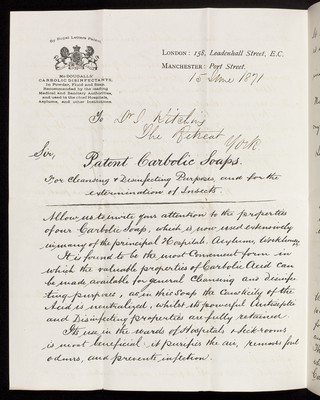 By Royal Letters Patent
McDOUGALLS'
CARBOLIC DISINFECTANTS,
In Powder, Fluid and Soap.
Recommended by the leading
Medical and Sanitary Authorities,
and used in the chief Hospitals,
Asylums, and other Institutions.
LONDON: 158, Leadenhall Street, E.C.
MANCHESTER: Port Street.
15 June 1871
To Dr S. Kitching
The Retreat
York
Sir,
Patent Carbolic Soaps.
For Cleansing & Disinfecting Purposes, and for the
extermination of Insects.
Allow us to invite your attention to the properties
of our Carbolic Soap, which is now used extensively
in many of the principal Hospitals, Asylums, Workhouses,
It is found to be the most Convenient form in
which the valuable properties of Carbolic Acid can
be made available for general Cleansing and Disinfec-
ting purposes, as in this Soap the Causticity of the
Acid is neutralized, whilst its powerful Antiseptic
and Disinfecting properties are fully retained.
Its use in the wards of Hospitals & Sick-rooms
is most beneficial: it purifies the air, removes foul
odours, and prevents infection.